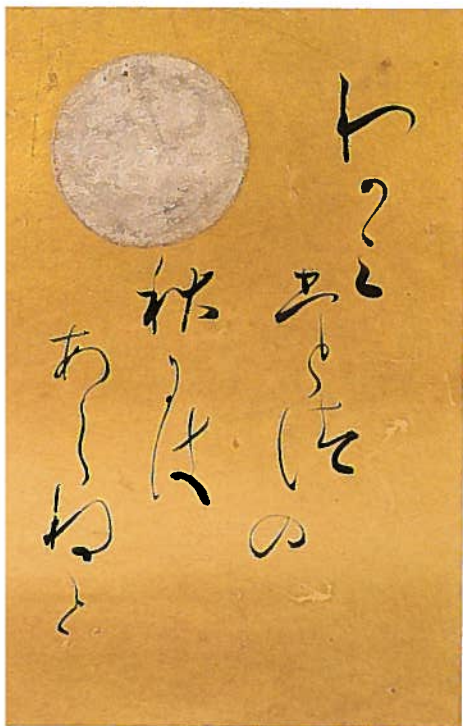 わかみ
ひとつの
秋には
あらねと